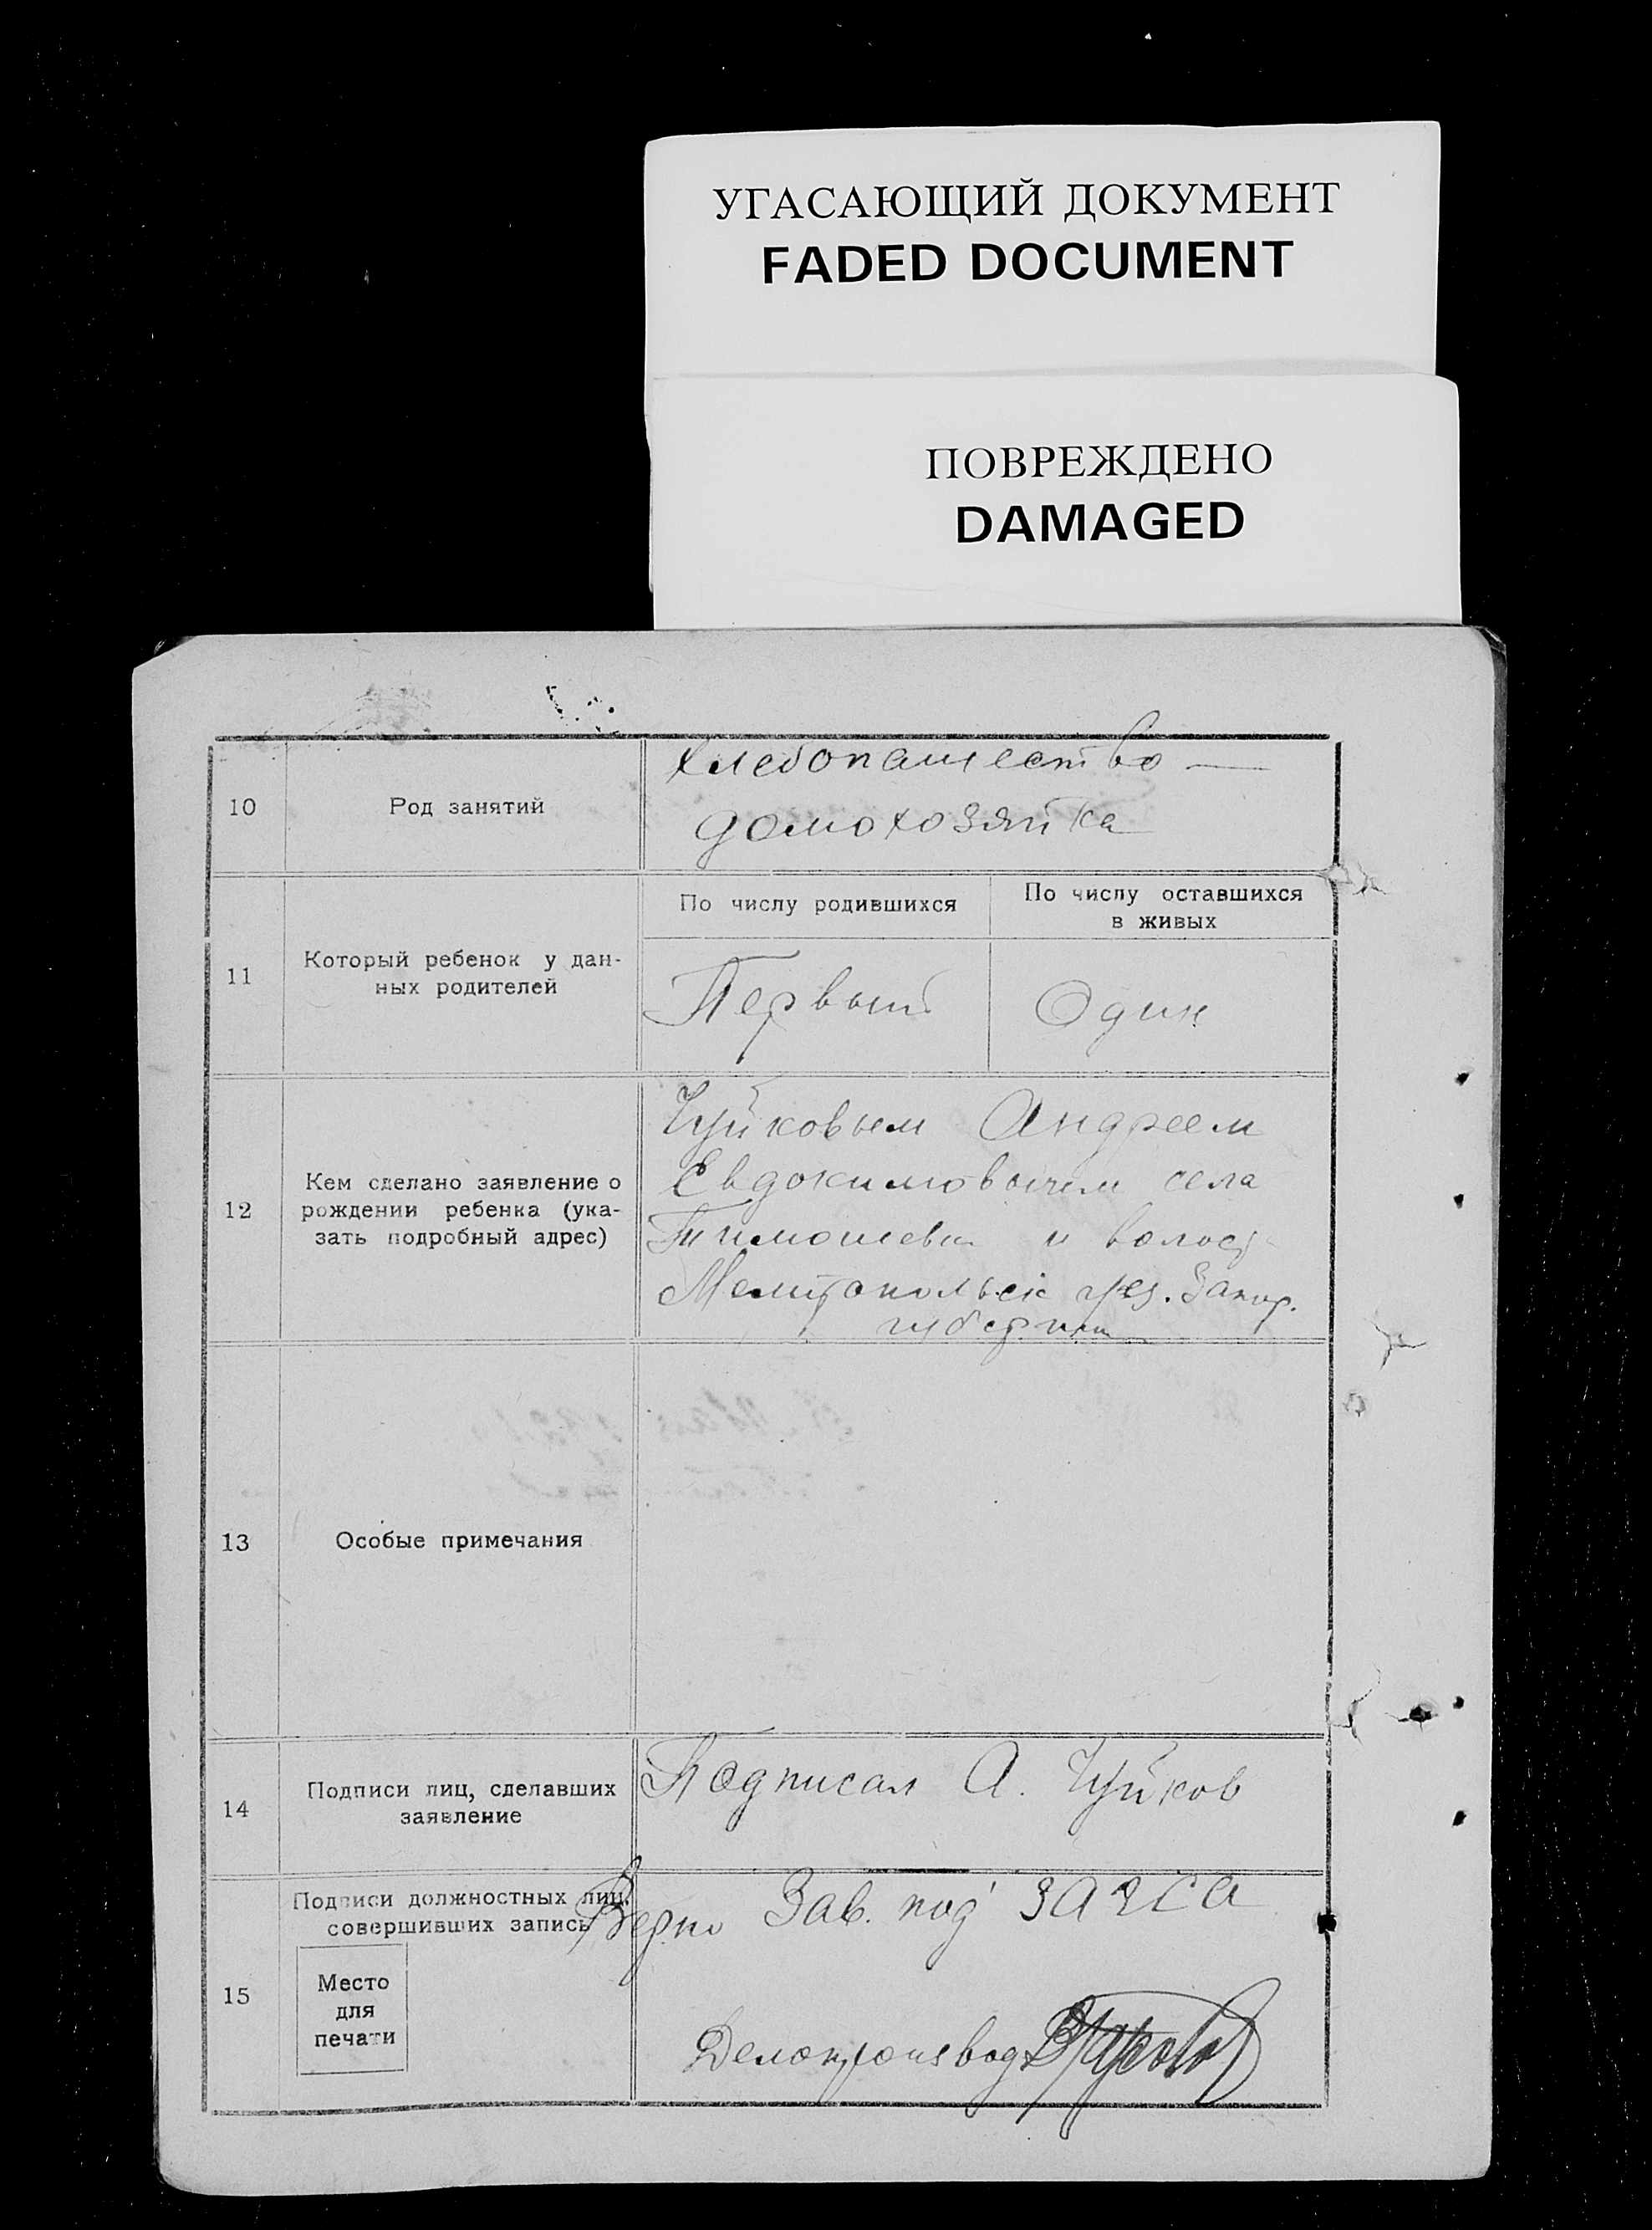 УГАСАЮЩИЙ ДОКУМЕНТ
FADED DOCUMENT
ПОВРЕЖДЕНО
DAMAGED
10
Род занятий
хлебопашество —
домохозяйка
11
Который ребенок у дан-
ных родителей
По числу родившихся
По числу оставшихся
в живых
Первый
Один
12
Кем сделано заявление о
рождении ребенка (ука-
зать подробный адрес)
Чуйковым Андреем
Евдокимовичем села
Тимошевки и волост
Мелитопольск уез. Запор.
губернии
13
Особые примечания
14
Подписи лиц, сделавших
заявление
Подписал А. Чуйков
15
Подписи должностных лиц,
совершивших запись
Место
для
печати
Верно Зав. под ЗАГСа
Делопроизвод